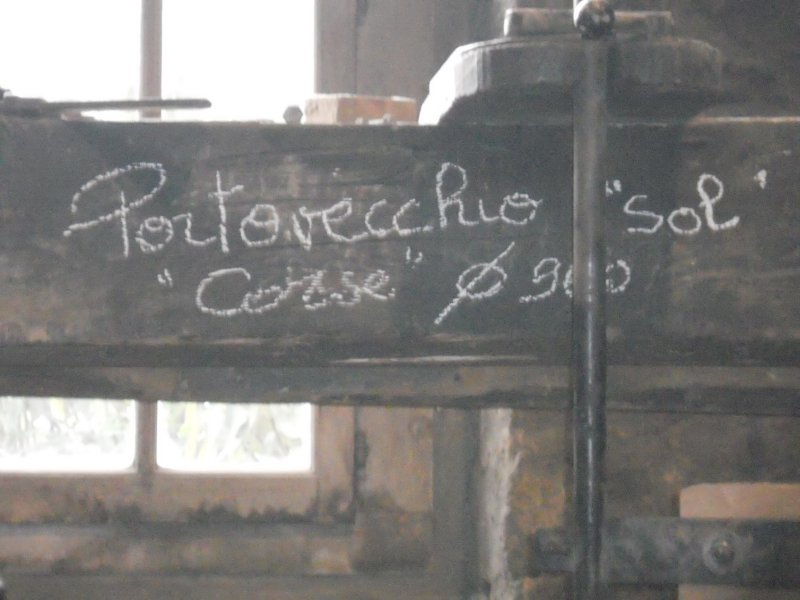 Portovecchio "Sol"
"Corse" Ø 900